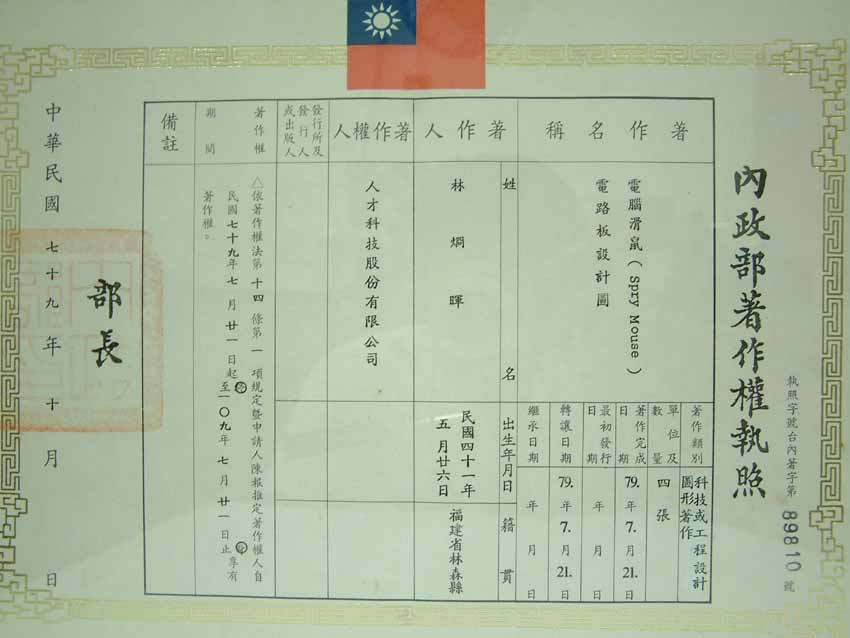 內政部著作權執照
執照字號台內著字第89810號
著作名稱
電腦滑鼠(Spry Mouse)
電路板設計圖
著作類別
科技或工程設計
圖形著作
單位及
數量
四張
著作完成
日期
79.年7.月21.日
最初發行
日期
年月日
轉讓日期
79.年7.月21.日
繼承日期
年月日
著作人
姓名
林烱暉
出生年月日
民國四十一年
五月廿六日
籍貫
福建省林森縣
著作權人
人才科技股份有限公司
發行所及
發行人
或出版人
著作權
期間
△依著作權法第十四條第一項規定暨申請人陳報推定著作權人自
民國七十九年七月廿一日起至一〇九年七月廿一日止享有
著作權。
備註
部長
中華民國七十九年十月日